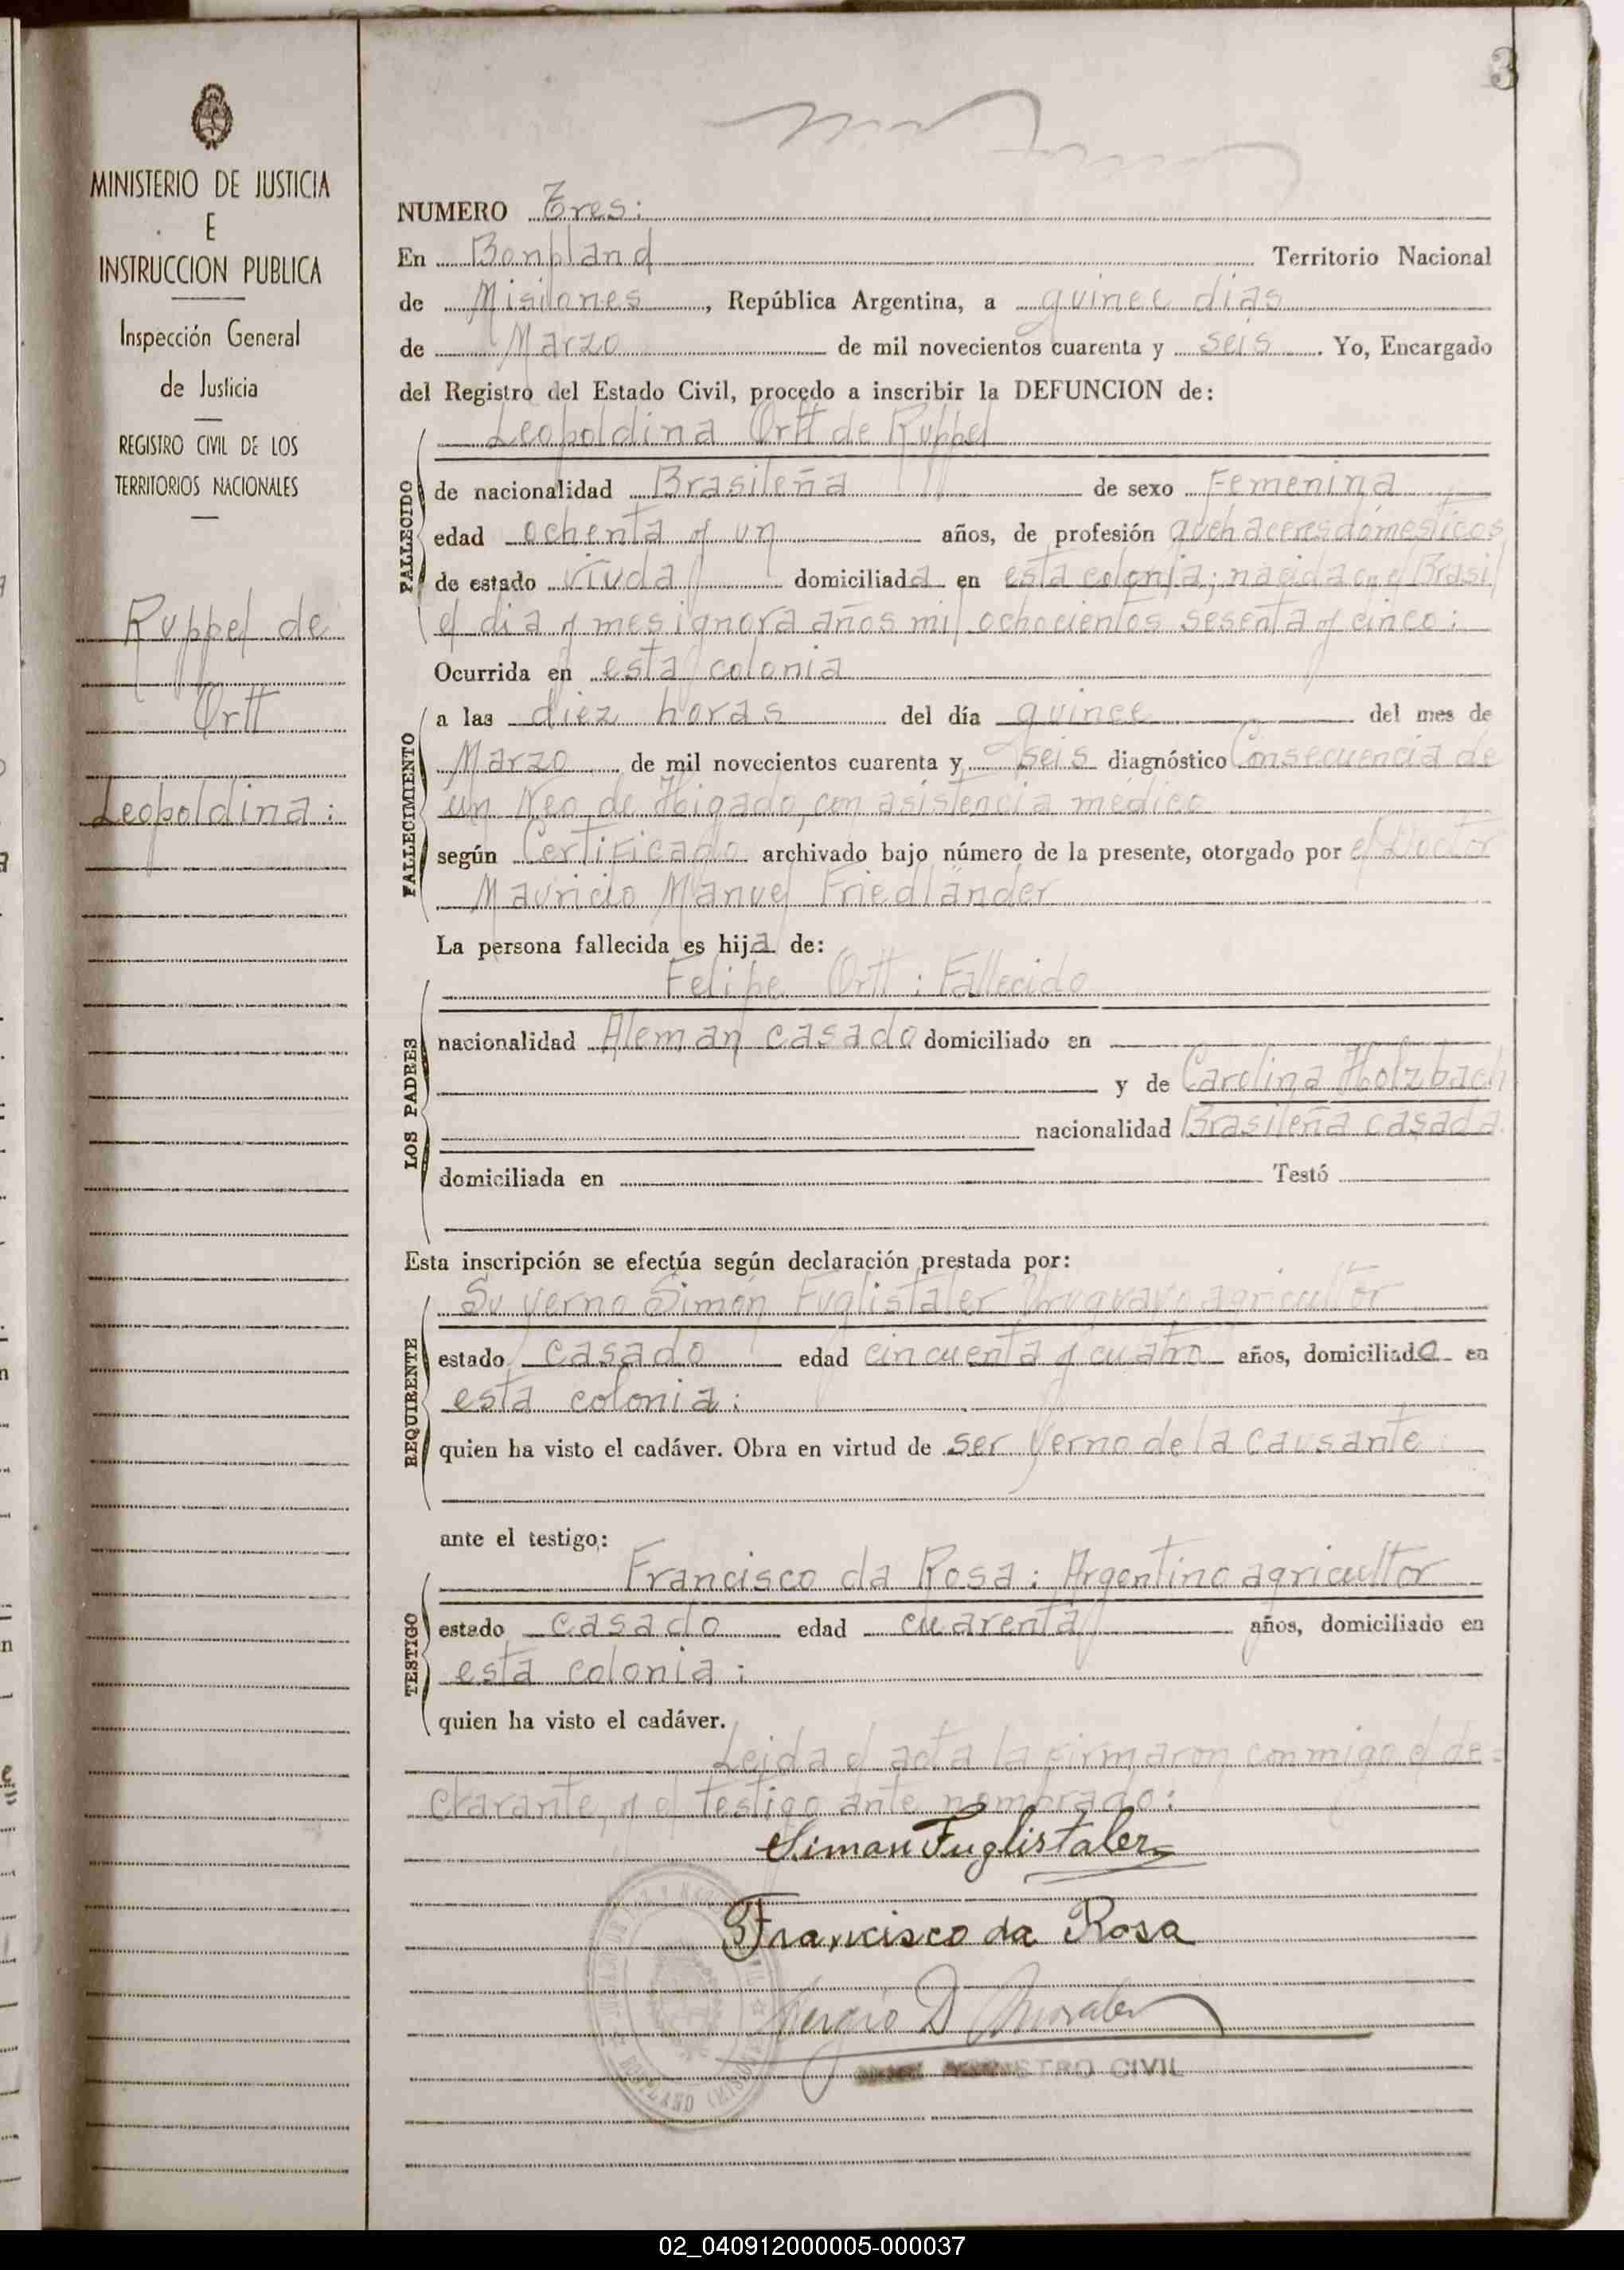 3
MINISTERIO DE JUSTICIA
E
INSTRUCCION PUBLICA
Inspección General
de Justicia
REGISTRO CIVIL DE LOS
TERRITORIOS NACIONALES
Ruppel de
Ortt
Leopoldina:
NUMERO Tres:
En Bonpland Territorio Nacional
de Misiones, República Argentina, a quince dias
de Marzo de mil novecientos cuarenta y seis. Yo, Encargado
del Registro del Estado Civil, procedo a inscribir la DEFUNCION de:
Leopoldina Ortt de Ruppel
FALLECIDO
de nacionalidad Brasileña de sexo Femenina
edad ochenta y un años, de profesión quehaceres domesticos
de estado viuda domiciliada en esta colonia; nacida en el Brasil
el dia y mes ignora años mil ochocientos sesenta y cinco:
Ocurrida en esta colonia
FALLECIMIENTO
a las diez horas del día quince del mes de
Marzo de mil novecientos cuarenta y seis diagnóstico Consecuencia de
un Neo de Higado, con asistencia medico
según Certificado archivado bajo número de la presente, otorgado por el Doctor
Mauricio Manuel Friedländer
La persona fallecida es hija de:
LOS PADRES
Felipe Ortt: Fallecido
nacionalidad Aleman casado domiciliado en
y de Carolina Holzbach
nacionalidad Brasileña casada
domiciliada en Testó
Esta inscripción se efectúa según declaración prestada por:
REQUIRENTE
Su yerno Simón Fuglistaler Uruguayo agricultor
estado casado edad cincuenta y cuatro años, domiciliado en
esta colonia:
quien ha visto el cadáver. Obra en virtud de ser yerno de la causante
ante el testigo:
TESTIGO
Francisco da Rosa: Argentino agricultor
estado casado edad cuarenta años, domiciliado en
esta colonia:
quien ha visto el cadáver.
Leida el acta la firmaron conmigo el de=
clarante, y el testigo ante nombrado:
Simon Fuglistaler
Francisco da Rosa
Sergio D Morales
REGISTRO CIVIL
BONPLAND (MISIONES)
02_040912000005-000037